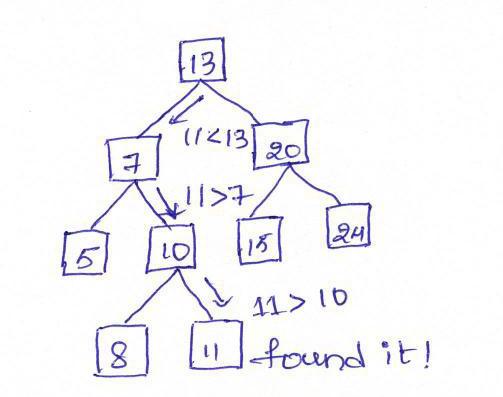 13
11<13
7
20
11>7
5
10
15
24
11 > 10
8
11
found it!